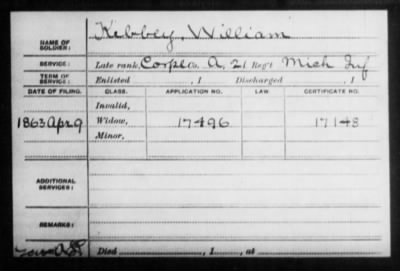 NAME OF SOLDIER: Kebbey, William
SERVICE: Late rank, Corpl Co. A, 21 Reg't Mich Inf
TERM OF SERVICE: Enlisted , 1 Discharged , 1
DATE OF FILING. CLASS. APPLICATION NO. LAW. CERTIFICATE NO.
Invalid,
1863 Apr 9 Widow, 17496 17148
Minor,
ADDITIONAL SERVICES:
REMARKS:
Died , 1 , at